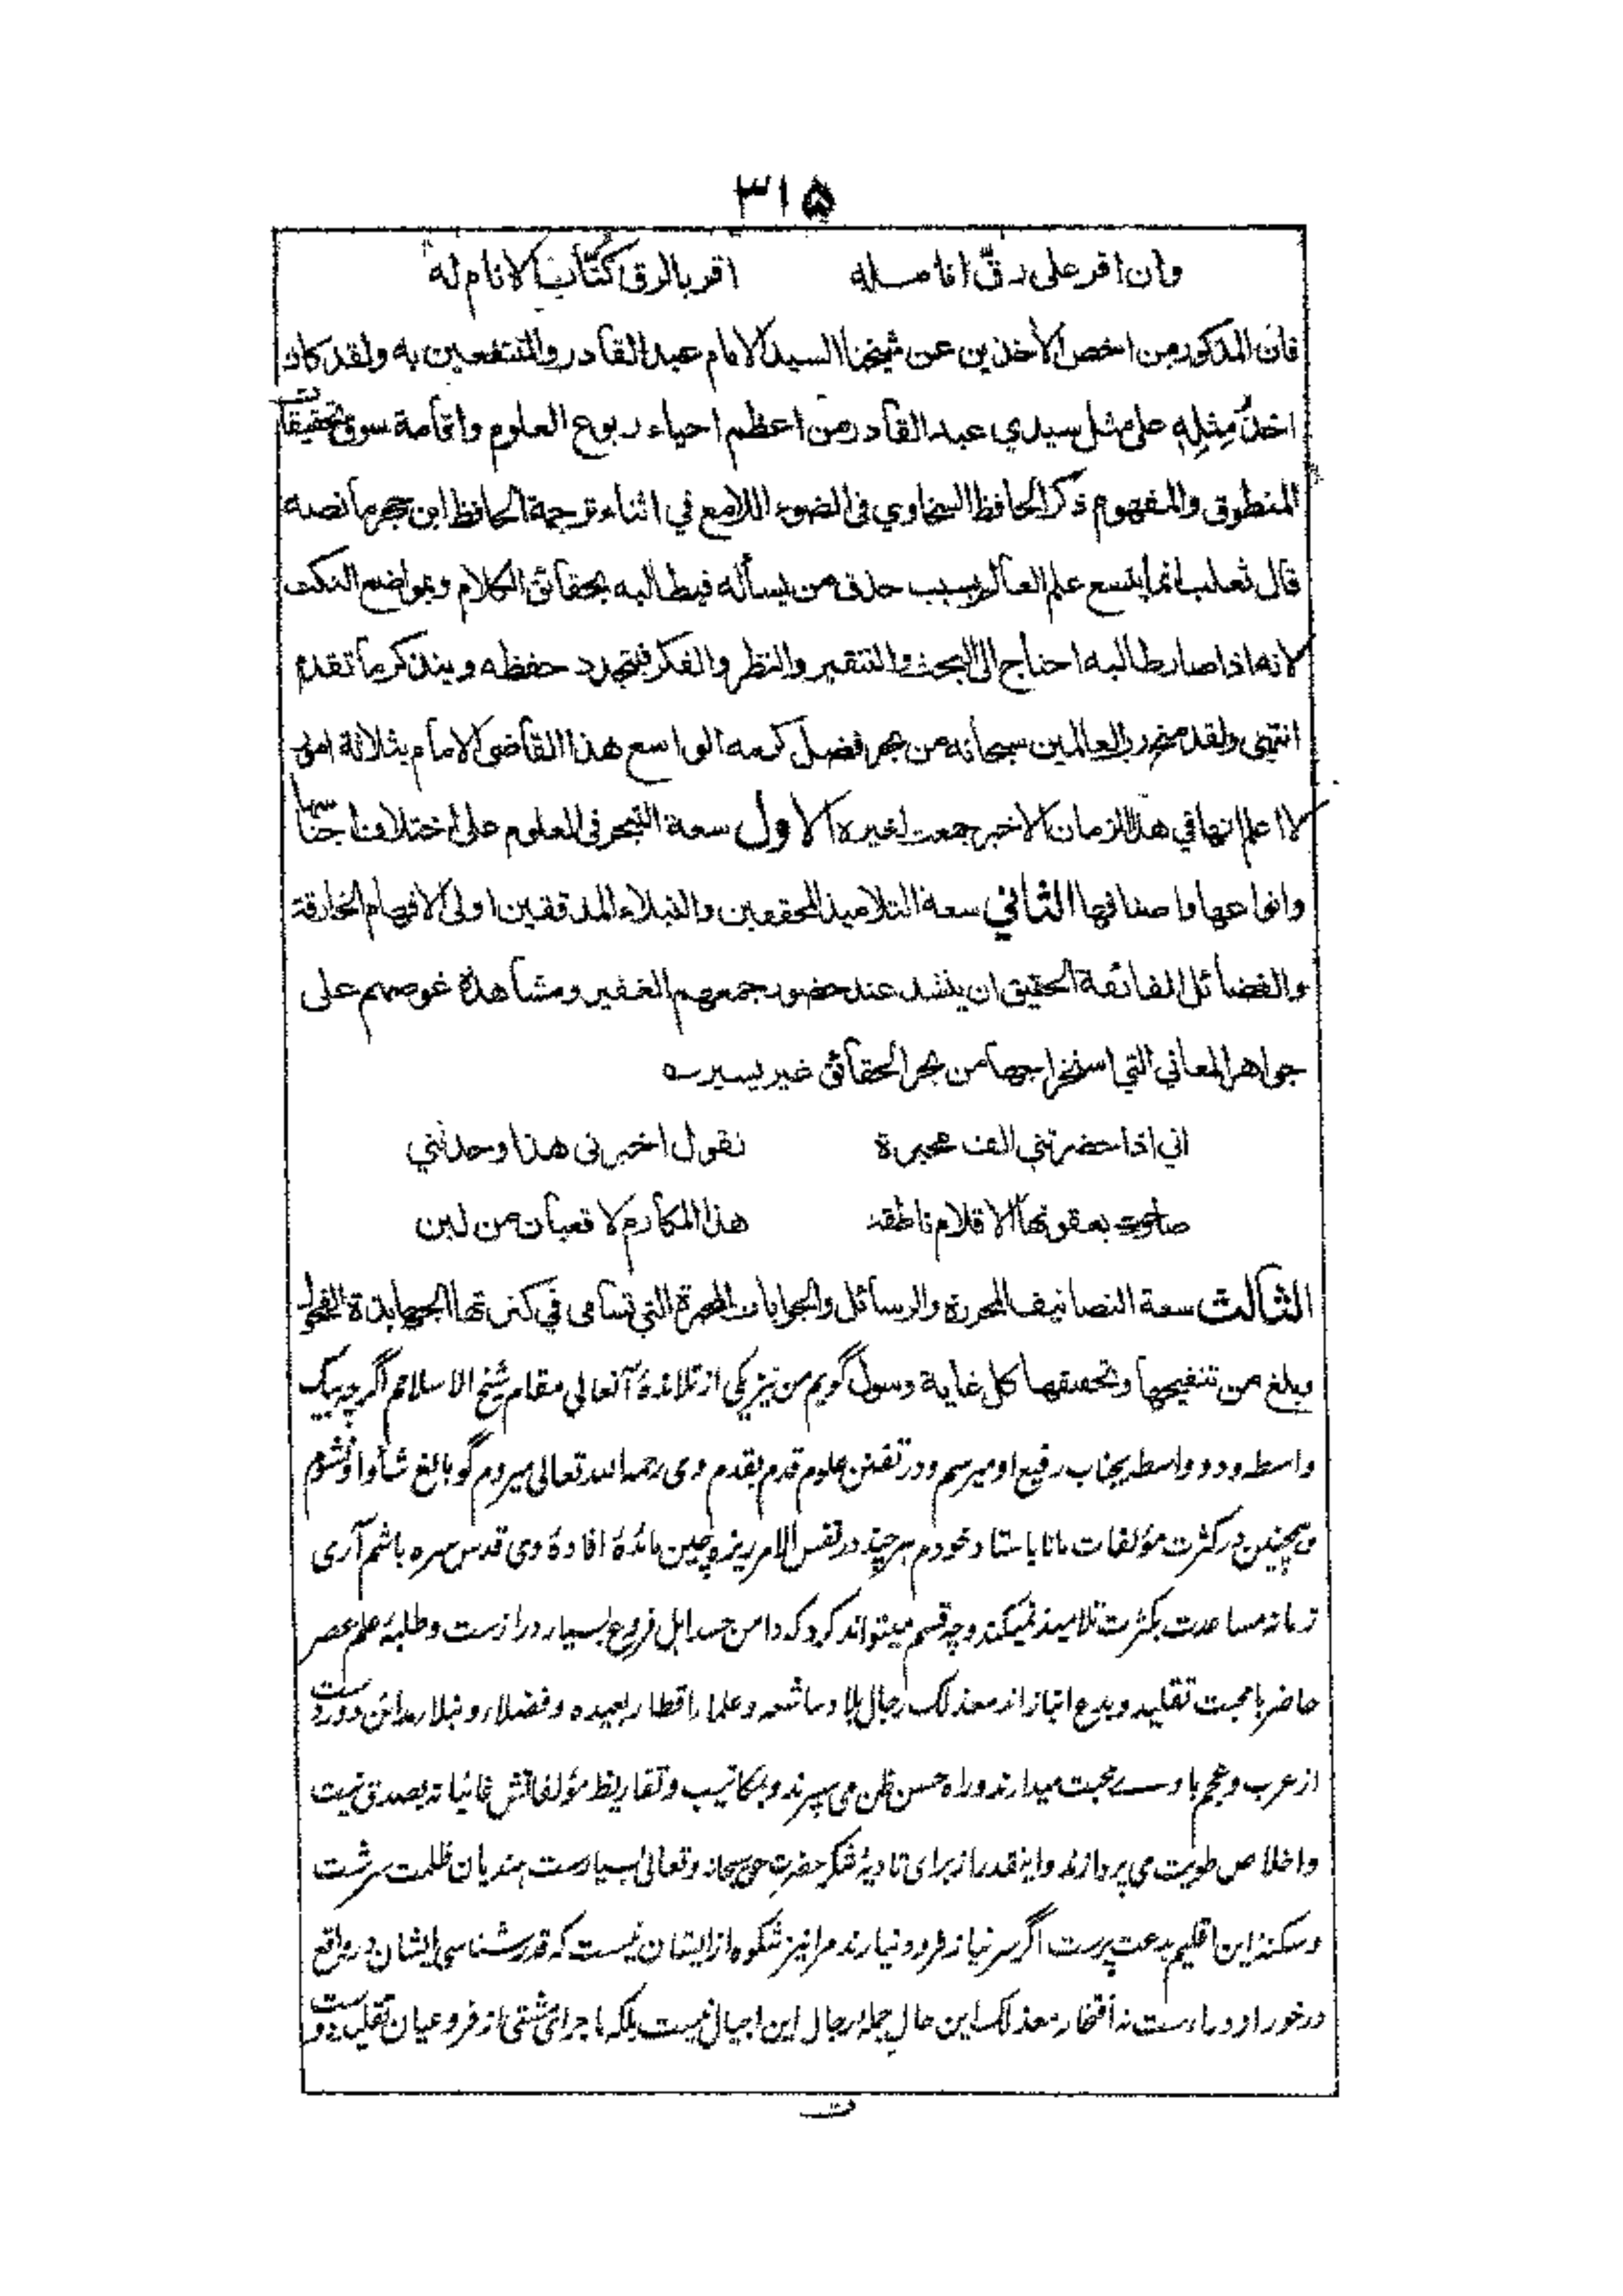 ۳۱۵
وان اقر على رق انامله اقر بالرق كتاب الانام له
فان المذكور من اخص الآخذين عن شيخنا السيد الامام عبد القادر والمنتفعين به ولقد كان
اخذ مثله على مثل سيدي عبد القادر من اعظم احياء ربوع العلوم واقامة سوق تحقيقات
المنطوق والمفهوم ذكر الحافظ السخاوي في الضوء اللامع في اثناء ترجمة الحافظ ابن حجر ما نصه
قال ثعلب انما يتسع علم العالم بسبب حذق من يسأله فيطالبه بحقائق الكلام وبمواضع النكت
لانه اذا صار طالبه احتاج الى البحث والتنقير والنظر والفكر فيتجدد حفظه ويتذكر ما تقدم
انتهى ولقد منح رب العالمين سبحانه من بحر فضل كرمه الواسع هذا القاضي الامام بثلاثة امور
لا اعلم انها في هذا الزمان الاخير جمعت لغيره الاول سعة التبحر في العلوم على اختلاف اجناسها
وانواعها واصنافها الثاني سعة التلاميذ المحققين والنبلاء المدققين اولى الافهام الخارقة
والفضائل الفائقة الحقيق ان ينشد عند حضور جمعهم الغفير ومشاهدة غوصهم على
جواهر المعاني التي استخراجها من بحر الحقائق غير يسير
اني اذا حضرتني الف محبرة نقول اخبرنى هذا وحدثني
صاحت بعقوتها الاقلام ناطقة هذا المكارم لا قعبان من لبن
الثالث سعة التصانيف المحررة والرسائل والجوابات المحبرة التي تسامى في كثرتها الجهابذة الفحول
وبلغ من تنقيحها وتحقيقها كل غاية وسول گويم من نيز يكى از تلامذۀ آنعالى مقام شيخ الاسلامم اگرچه بيک
واسطه و دو واسطه بجناب رفيع او ميرسم و در تفنن علوم قدم بقدم وى رحمه الله تعالى ميروم گو بالغ شأو او نشوم
و همچنين در كثرت مؤلفات مانا باستاد خودم هر چند در نفس الامر ريزه چين مائدۀ افادۀ وى قدس سره باشم آرى
زمانه مساعدت بكثرت تلاميذ نميكند و چه قسم ميتواند كرد كه دامن حسد اهل فروغ بسيار دراز ست و طلبۀ علم عصر
حاضر با محبت تقليد و بدع انبازاند معذلک رجال بلاد شاسعه و علماء اقطار بعيده و فضلاء و نبلاء مدائن دوردست
از عرب و عجم با وے محبت ميدارند و راه حسن ظن مى سپرند و بمكاتيب و تقاريظ مؤلفاتش غائبانه بصدق نيت
و اخلاص طويت مى پردازند و اينقدر از براى تاديۀ شكر حضرت حق سبحانه و تعالى بسيارست هنديان ظلمت سرشت
و سكنۀ اين اقليم بدعت پرست اگر سر نياز فرود نيارند مرا نيز شكوه از ايشان نيست كه قدر شناسى ايشان در واقع
درخور ازدراء ست نه افتخار معذلک اين حال جمله رجال اين اجيال نيست بلكه ماجراى مشتى از فروعيان تقليد دوست
ت